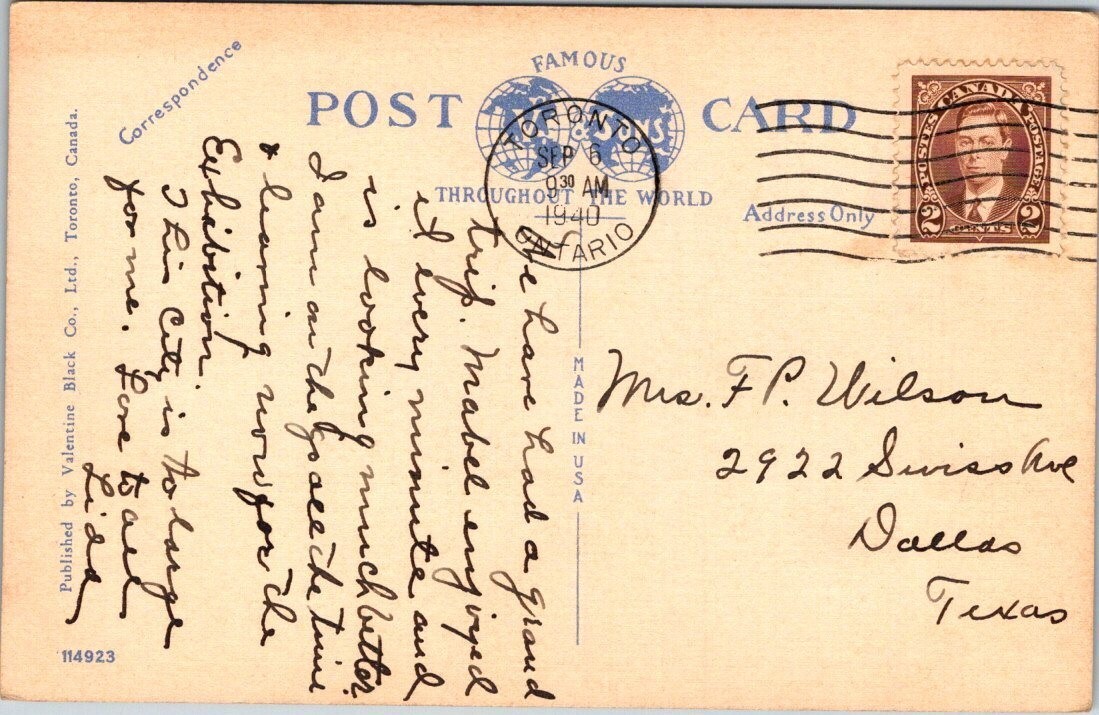 Correspondence
FAMOUS
POST CARD
THROUGHOUT THE WORLD
Address Only
TORONTO
SEP 6
9 30 AM
1940
ONTARIO
CANADA
POSTES POSTAGE
2 CENTS 2
We have had a grand
trip. Mabel enjoyed
it every minute and
is looking much better.
I am on the go all the time
& leaving now for the
Exhibition.
This City is to large
for me. Love to all
Lida
MADE IN USA
Mrs. F P. Wilson
2922 Swiss Ave
Dallas
Texas
Published by Valentine Black Co., Ltd., Toronto, Canada.
114923